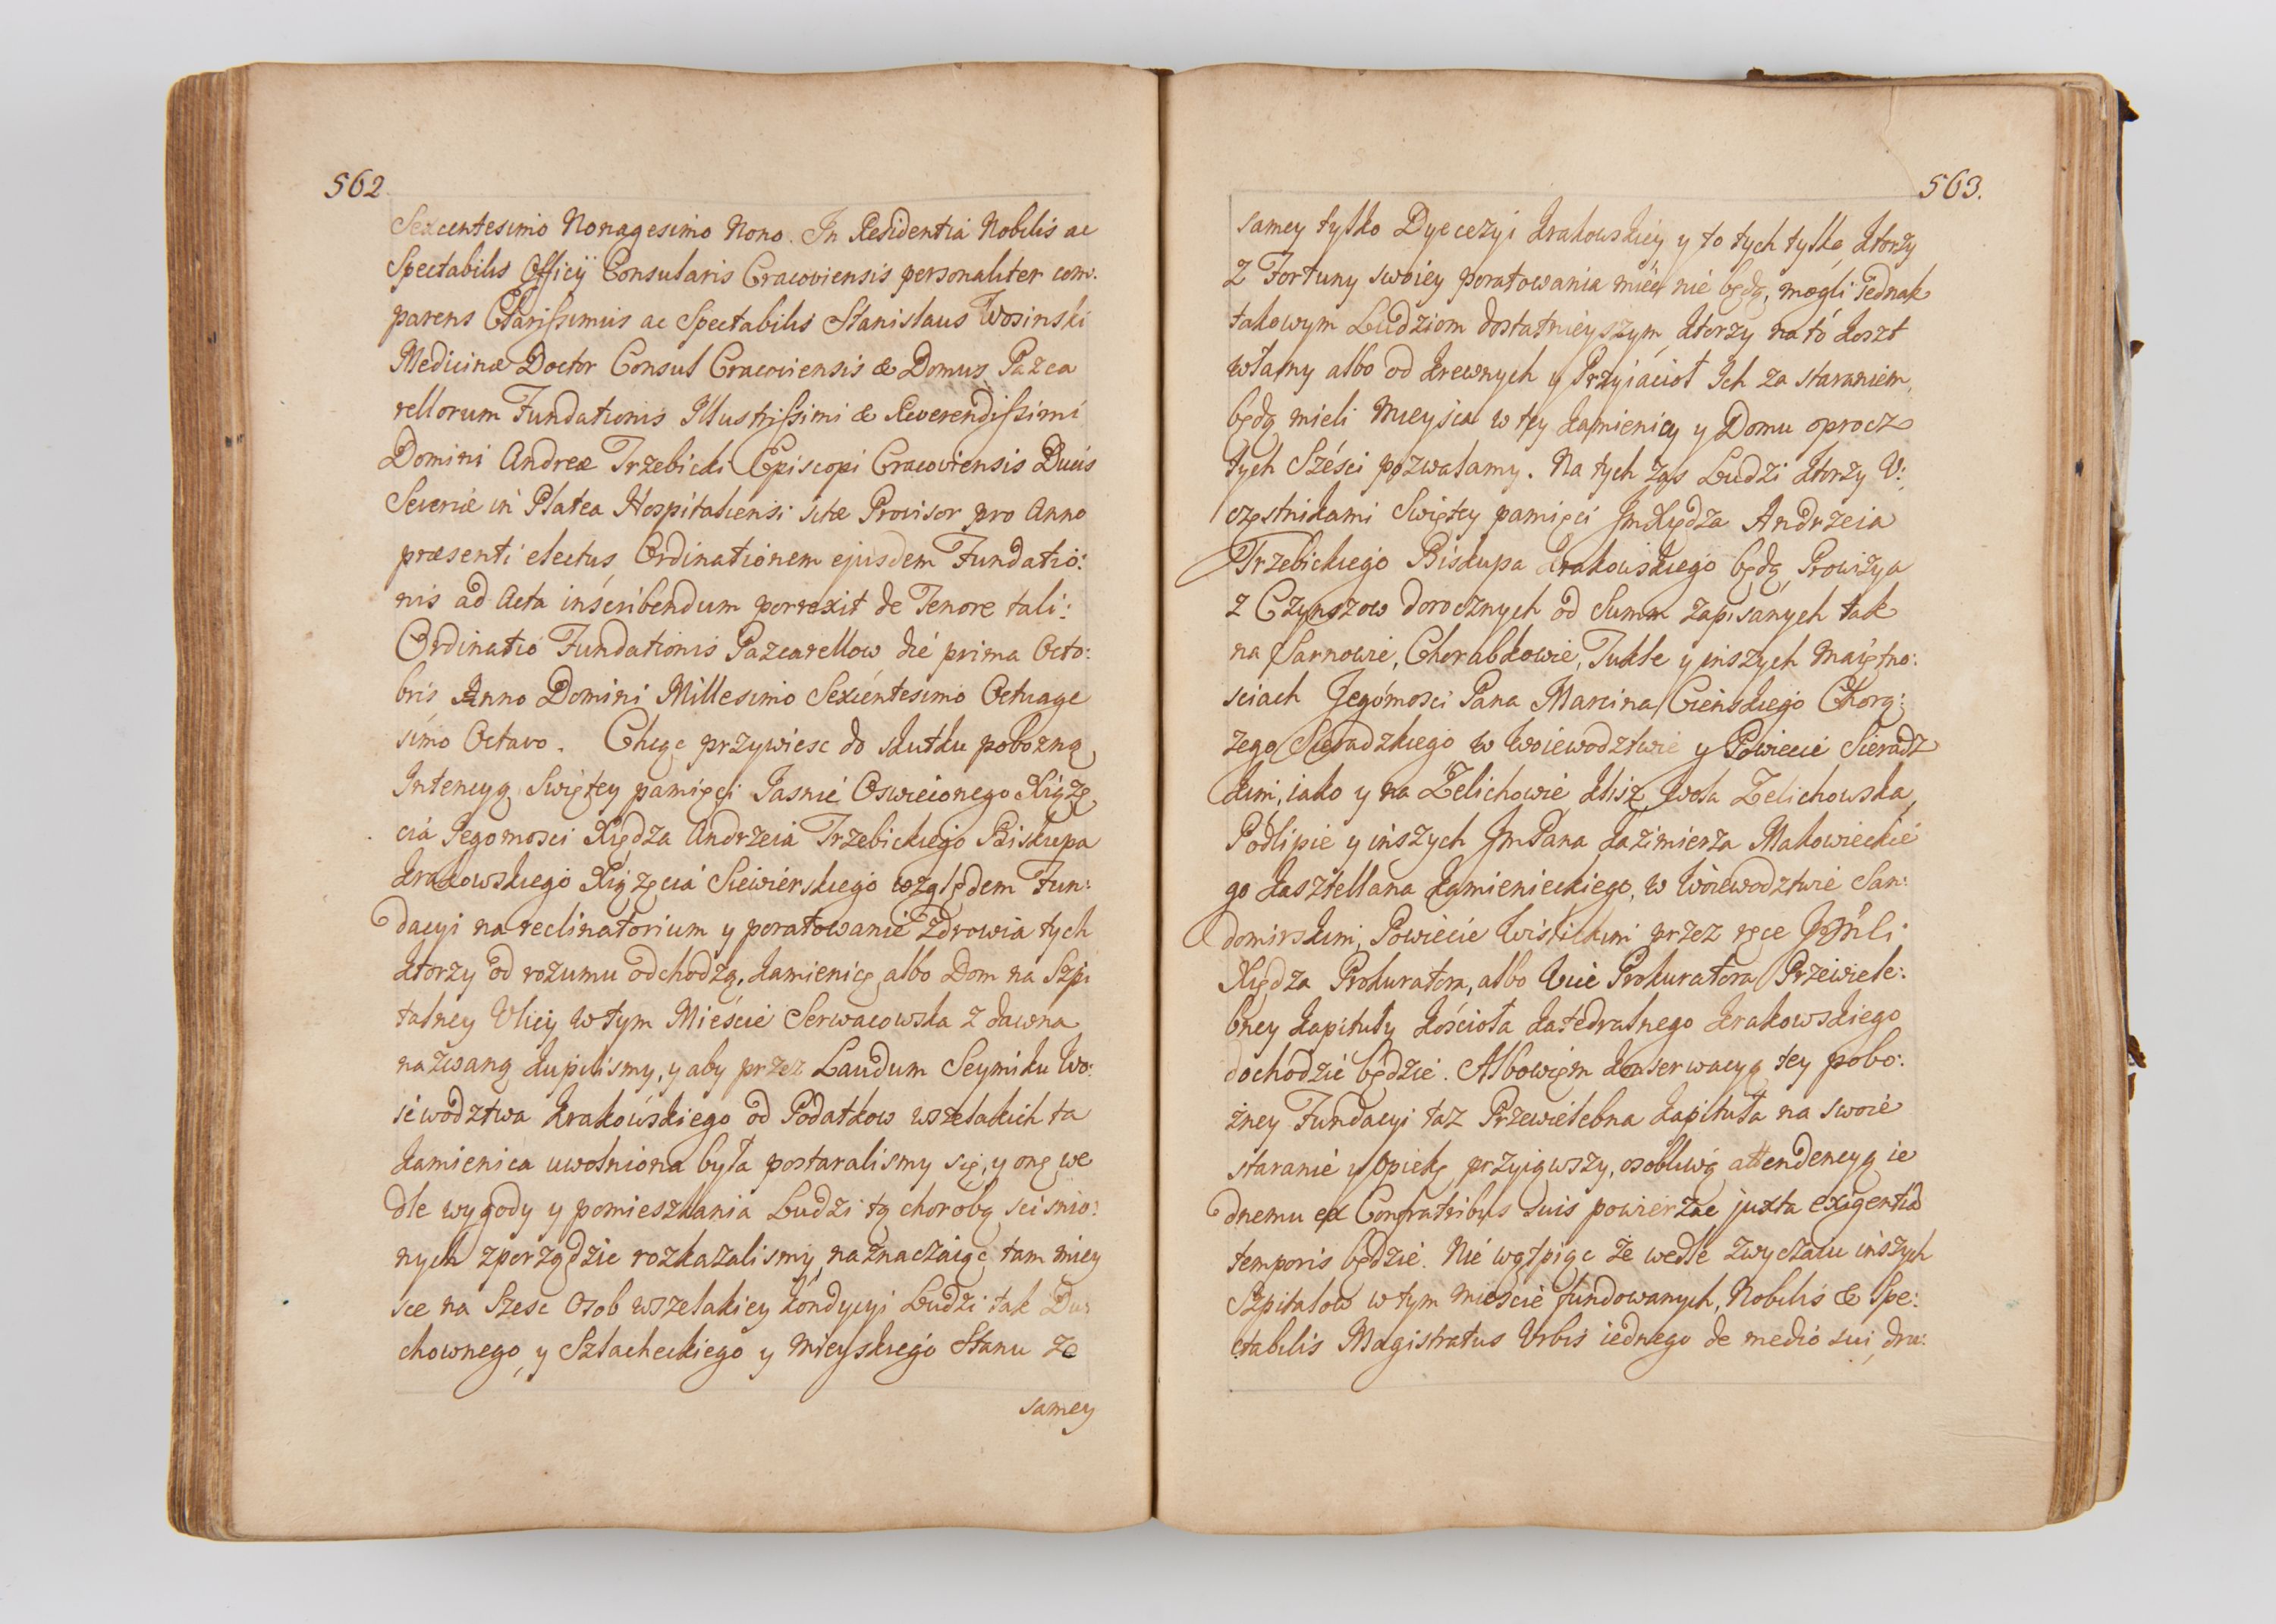 562
Sexcentesimo Nonagesimo Nono. In Residentia Nobilis ac
Spectabilis Officÿ Consularis Cracoviensis personaliter com:
parens Clarissimus ac Spectabilis Stanislaus Wosinski
Medicinæ Doctor Consul Cracoviensis & Domus Pazca
rellorum Fundationis Illustrissimi & Reverendissimi
Domini Andreæ Trzebicki Episcopi Cracoviensis Ducis
Severiæ in Platea Hospitaliensi sitæ Provisor pro Anno
præsenti electus Ordinationem ejusdem Fundatio:
nis ad Acta inscribendum porrexit de Tenore tali:
Ordinatio Fundationis Pazcarellow die prima Octo:
bris Anno Domini Millesimo Sexcentesimo Octuage
simo Octavo. Chcąc przywiesc do skutku pobozną
Intencyą Swiętey pamięci Jasnie Oswieconego Xiązę
cia Jegomosci Xiędza Andrzeia Trzebickiego Biskupa
Krakowskiego Xiązęcia Siewierskiego względem Fun:
dacyi na reclinatorium y poratowanie Zdrowia tych
ktorzy od rozumu odchodzą, kamienicę albo Dom na Szpi
talney Ulicy w tym Mieście Serwacowska z dawna
nazwaną kupilismy, y aby przez Laudum Seymiku Wo:
iewodztwa Krakowskiego od Podatkow wszelakich ta
kamienica uwolniona była postaralismy się, y onę we
dle wygody y pomieszkania Ludzi tą chorobą scisnio:
nych zporządzic rozkazalismy, naznaczaiąc tam miey
sce na Szesc Osob wszelakiey kondycyi Ludzi tak Du:
chownego, y Szlacheckiego y Mieyskiego Stanu ze
samey
563.
samey tylko Dyecezyi Krakowskiey, y to tych tylko, ktorzy
z Fortuny swoiey poratowania miec nie będą, mogli Jednak
takowym Ludziom dostatnieyszym, ktorzy na to koszt
własny albo od krewnych y Przyiacioł Ich za staraniem
będą mieli Mieysca w tey kamienicy y Domu oprocz
tych Sześci pozwalamy. Na tych zas Ludzi ktorzy U:
częstnikami Swiętey pamięci JmXiędza Andrzeia
Trzebickiego Biskupa Krakowskiego będą, Prowizya
z Czynszow dorocznych od Summ zapisanych tak
na Sarnowie, Chorabkowie, Tukle y inszych Maiętno:
sciach Jegomosci Pana Marcina Cienskiego Chorą:
zego Sieradzkiego w Woiewodztwie y Powiecie Sieradz
kim, iako y na Zelichowie, Klisz, Wola Zelichowska,
Podlipie y inszych JmPana Kazimierza Makowieckie
go Kasztellana Kamienieckiego, w Woiewodztwie San:
domirskim, Powiecie Wislickim przez ręce
Xiędza Prokuratora, albo Vice Prokuratora Przewiele:
bney Kapituły Kościoła Katedralnego Krakowskiego
dochodzić będzie. Albowiem konserwacyą tey pobo:
żney Fundacyi taz Przewielebna Kapituła na swoie
staranie y opiekę przyiąwszy, osobliwą attendencyą ie
dnemu ex Confratribus suis powierzac juxta exigentia
temporis będzie. Nie wątpiąc że wedle zwyczaiu inszych
Szpitalow w tym mieście fundowanych, Nobilis & Spe:
ctabilis Magistratus Urbis iednego de medio sui, dru: